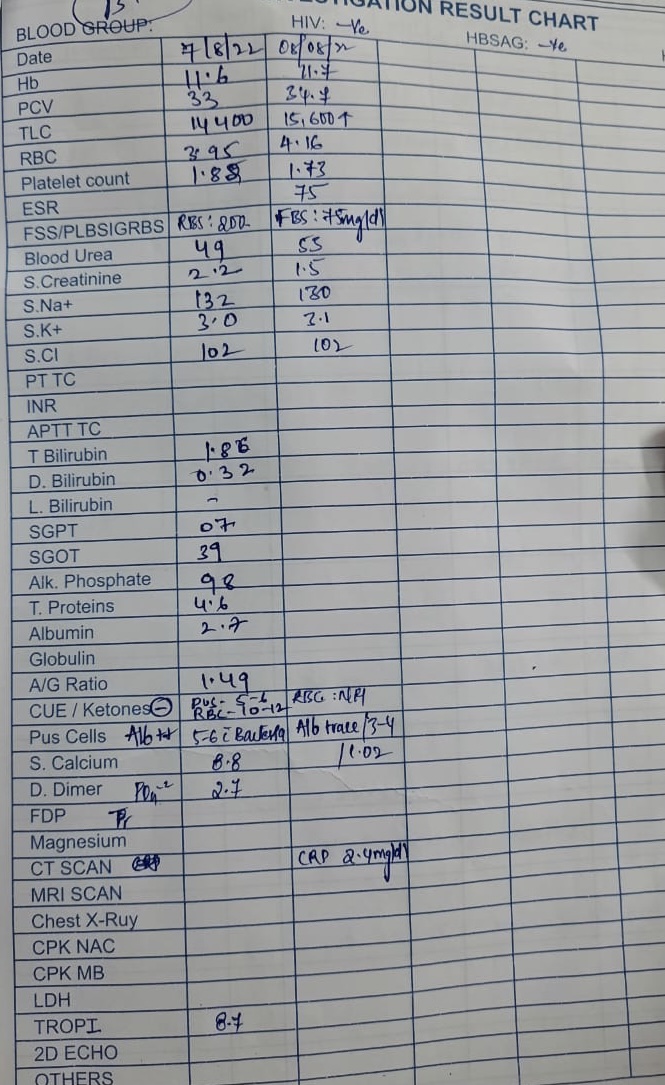 INVESTIGATION RESULT CHART
BLOOD GROUP: HIV: -Ve HBSAG: -Ve
Date 7/8/22 08/08/22
Hb 11.6 11.7
PCV 33 34.7
TLC 14400 15,600↑
RBC 3.95 4.16
Platelet count 1.88 1.73
ESR 75
FSS/PLBSIGRBS RBS: 200 FBS: 75mg/dl
Blood Urea 49 55
S.Creatinine 2.2 1.5
S.Na+ 132 130
S.K+ 3.0 3.1
S.Cl 102 102
PT TC
INR
APTT TC
T Bilirubin 1.86
D. Bilirubin 0.32
L. Bilirubin -
SGPT 07
SGOT 39
Alk. Phosphate 98
T. Proteins 4.6
Albumin 2.7
Globulin
A/G Ratio 1.49
CUE / Ketones ⊖ Pus- 5-6 RBC- 10-12 RBC: Nil
Pus Cells Alb ++ 5-6 Alb trace/3-4
S. Calcium 8.8 /1.02
D. Dimer PO4-2 2.7
FDP
Magnesium
CT SCAN CRP 2.4mg/dl
MRI SCAN
Chest X-Ruy
CPK NAC
CPK MB
LDH
TROPI 8.7
2D ECHO
OTHERS